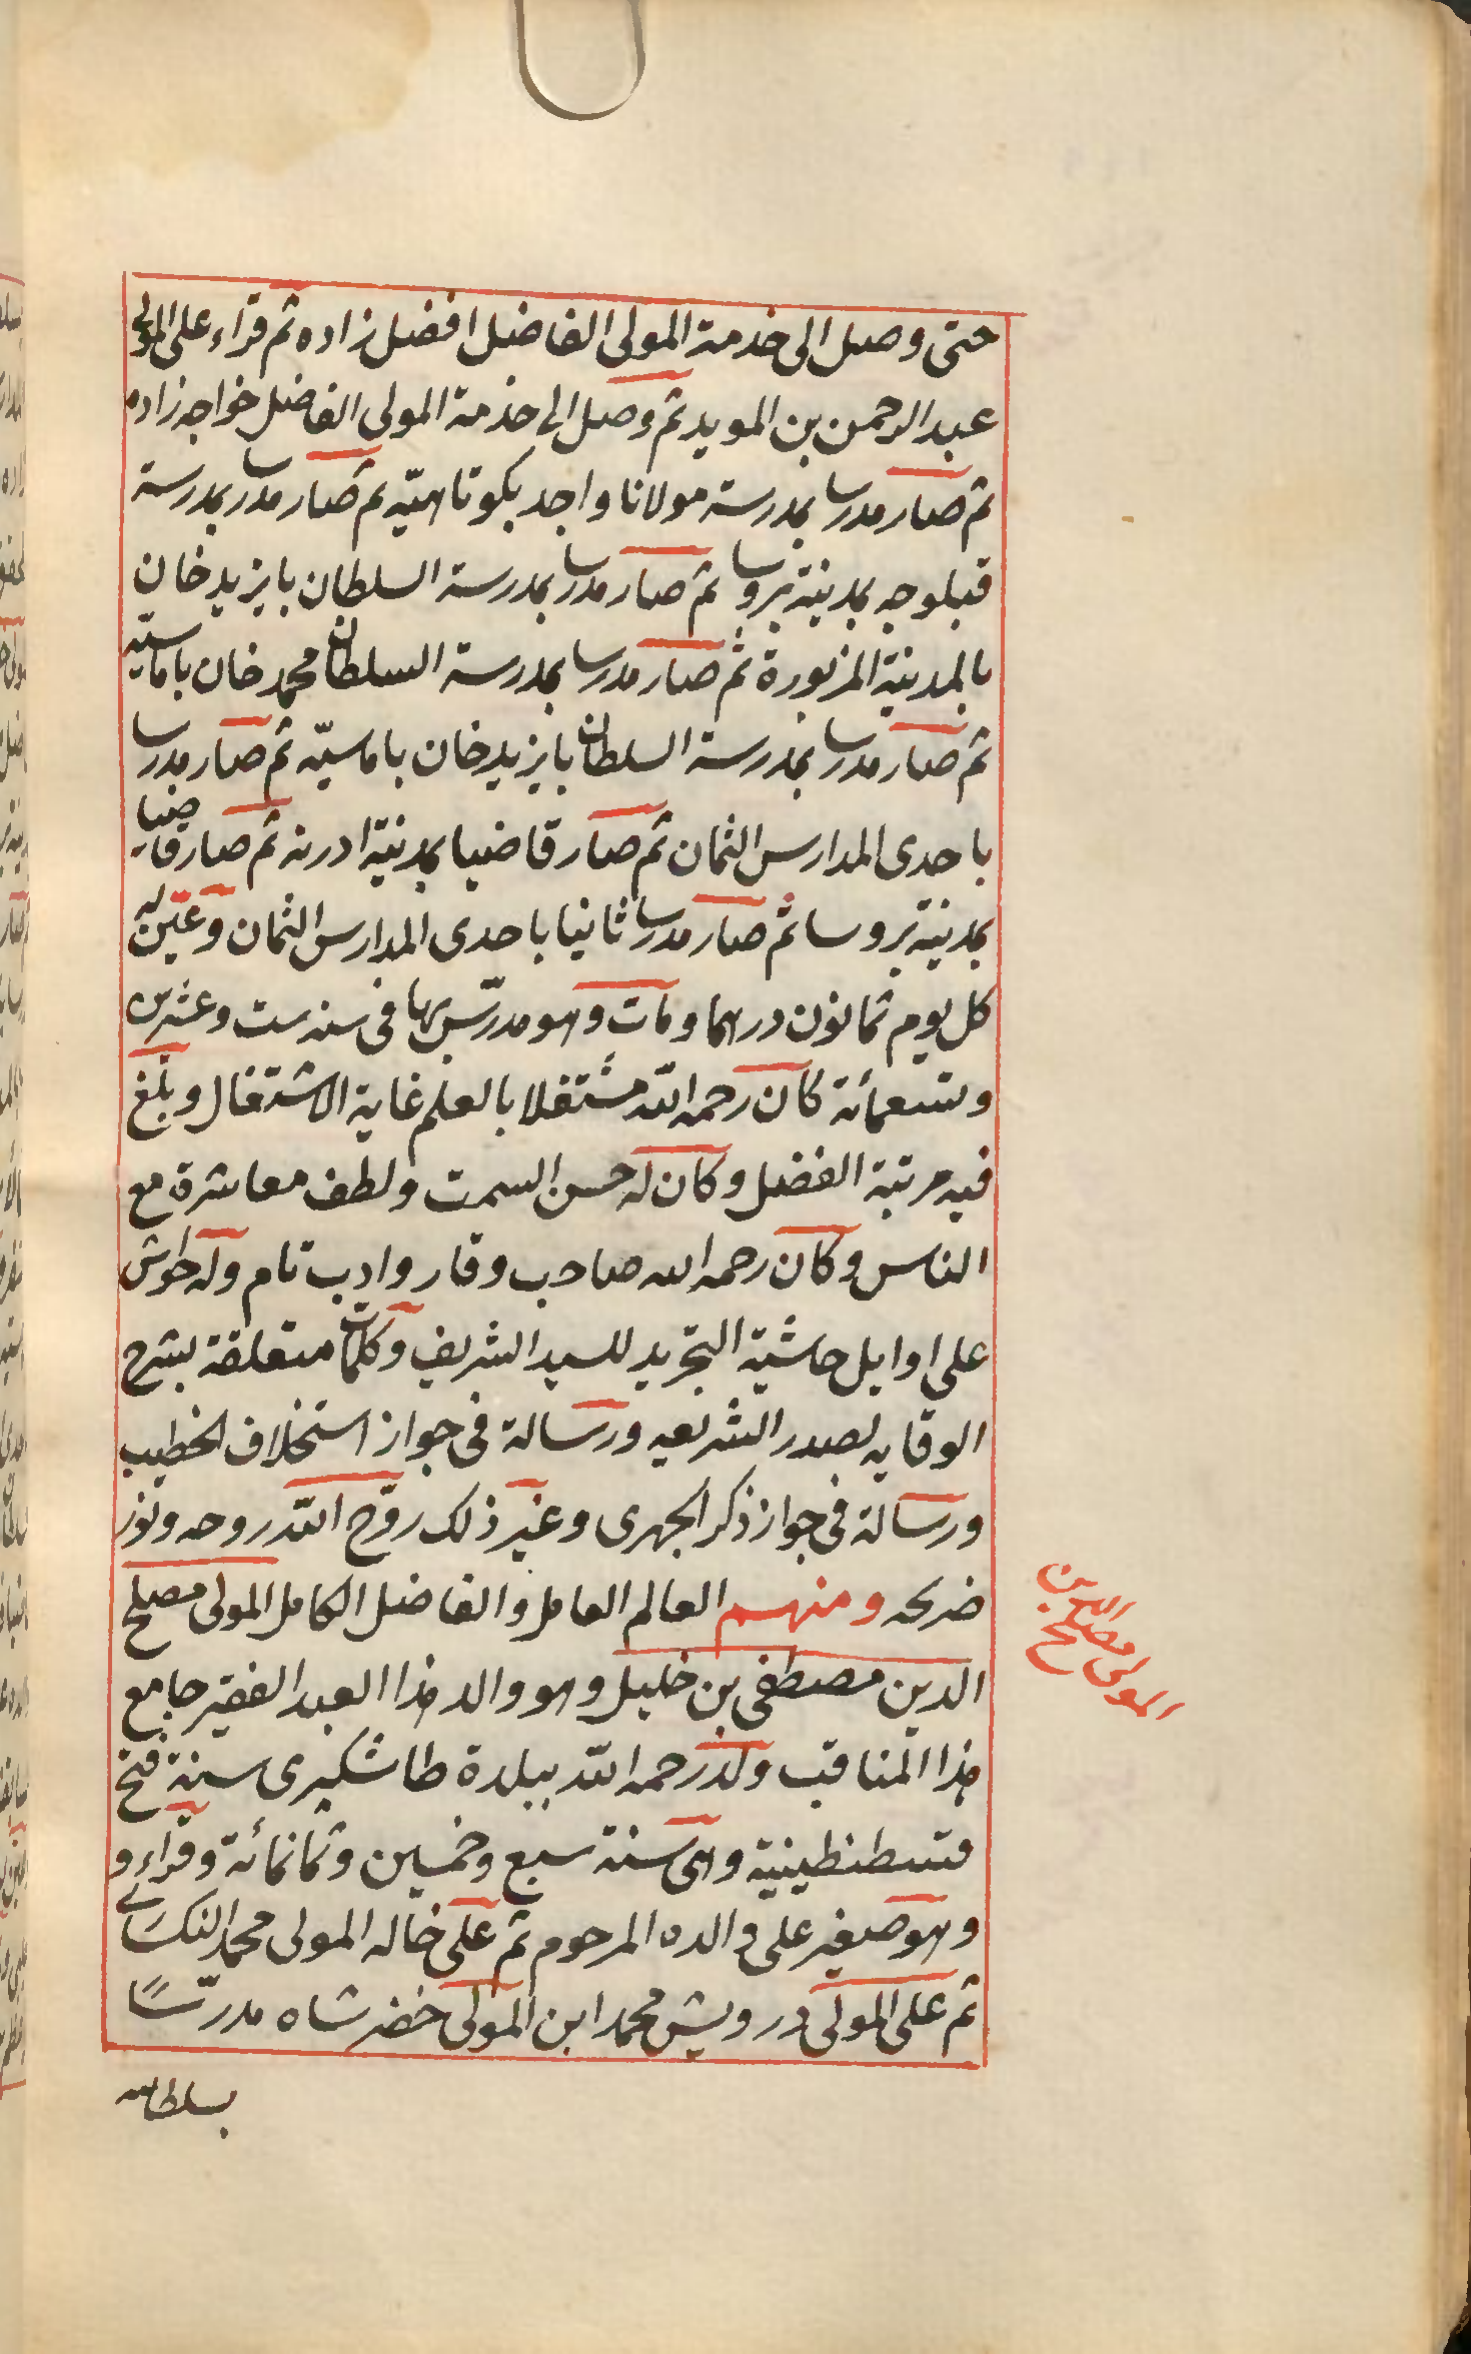 حتى وصل الى خدمة المولى الفاضل افضل زاده ثم قراء على المولى
عبد الرحمن بن المويد ثم وصل الى خدمة المولى الفاضل خواجه زاده
ثم صار مدرسا بمدرسة مولانا واجد بكوتاهيّه ثم صار مدرسا بمدرسة
قبلوجه بمدينة بروسا ثم صار مدرسا بمدرسة السلطان بايزيد خان
بالمدينة المزبورة ثم صار مدرسا بمدرسة السلطان محمد خان باماسيّه
ثم صار مدرسا بمدرسة السلطان بايزيد خان باماسيّه ثم صار مدرسا
باحدى المدارس الثمان ثم صار قاضيا بمدينة ادرنه ثم صار قاضيا
بمدينة بروسا ثم صار مدرسا ثانيا باحدى المدارس الثمان وعيّن له
كل يوم ثمانون درهما ومات وهو مدرّس بها فى سنه ست وعشرين
وتسعمائة كان رحمه الله مشتغلا بالعلم غاية الاشتغال وبلغ
فيه مرتبة الفضل وكان له حسن السمت ولطف معاشرة مع
الناس وكان رحمه الله صاحب وقار وادب تام وله حواش
على اوايل حاشية التجريد للسيد الشريف وكلمات متعلقة بشرح
الوقايه لصدر الشريعه ورسالة فى جواز استخلاف الخطيب
ورسالة فى جواز ذكر الجهرى وغير ذلك روّح الله روحه ونور
ضريحه ومنهم العالم العامل والفاضل الكامل المولى مصلح
المولى مصلح الدين
الدين مصطفى بن خليل وهو والد هذا العبد الفقير جامع
هذا المناقب ولد رحمه الله ببلدة طاشكبرى سنة فتح
قسطنطينية وهى سنة سبع وخمسين وثمانمائة وقراء و
وهو صغير على والده المرحوم ثم على خاله المولى محمد النكسارى
ثم على المولى درويش محمد ابن المولى خضر شاه مدرّسًا
بسلطانيه